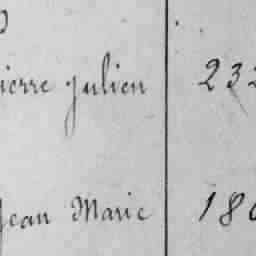 ierre Julien 232
Jean Marie 180